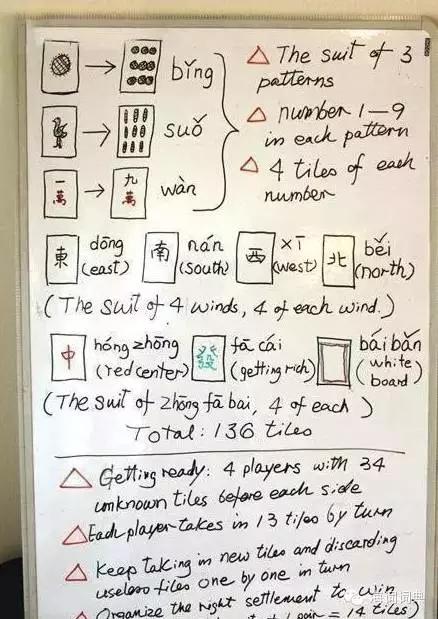 bǐng
△ The suit of 3
patterns
suǒ
△ number 1—9
in each pattern
一萬 → 九萬 wàn
△ 4 tiles of each
number
東 dōng (east) 南 nán (south) 西 xī (west) 北 běi (north)
(The suit of 4 winds, 4 of each wind.)
中 hóng zhōng (red center) 發 fā cái (getting rich) bái bǎn (white board)
(The suit of zhōng fā bai, 4 of each)
Total: 136 tiles
△ Getting ready: 4 players with 34
unknown tiles before each side
△ Each player takes in 13 tiles by turn
△ Keep taking in new tiles and discarding
useless tiles one by one in turn
△ Organize the right settlement to win
pair = 14 tiles)